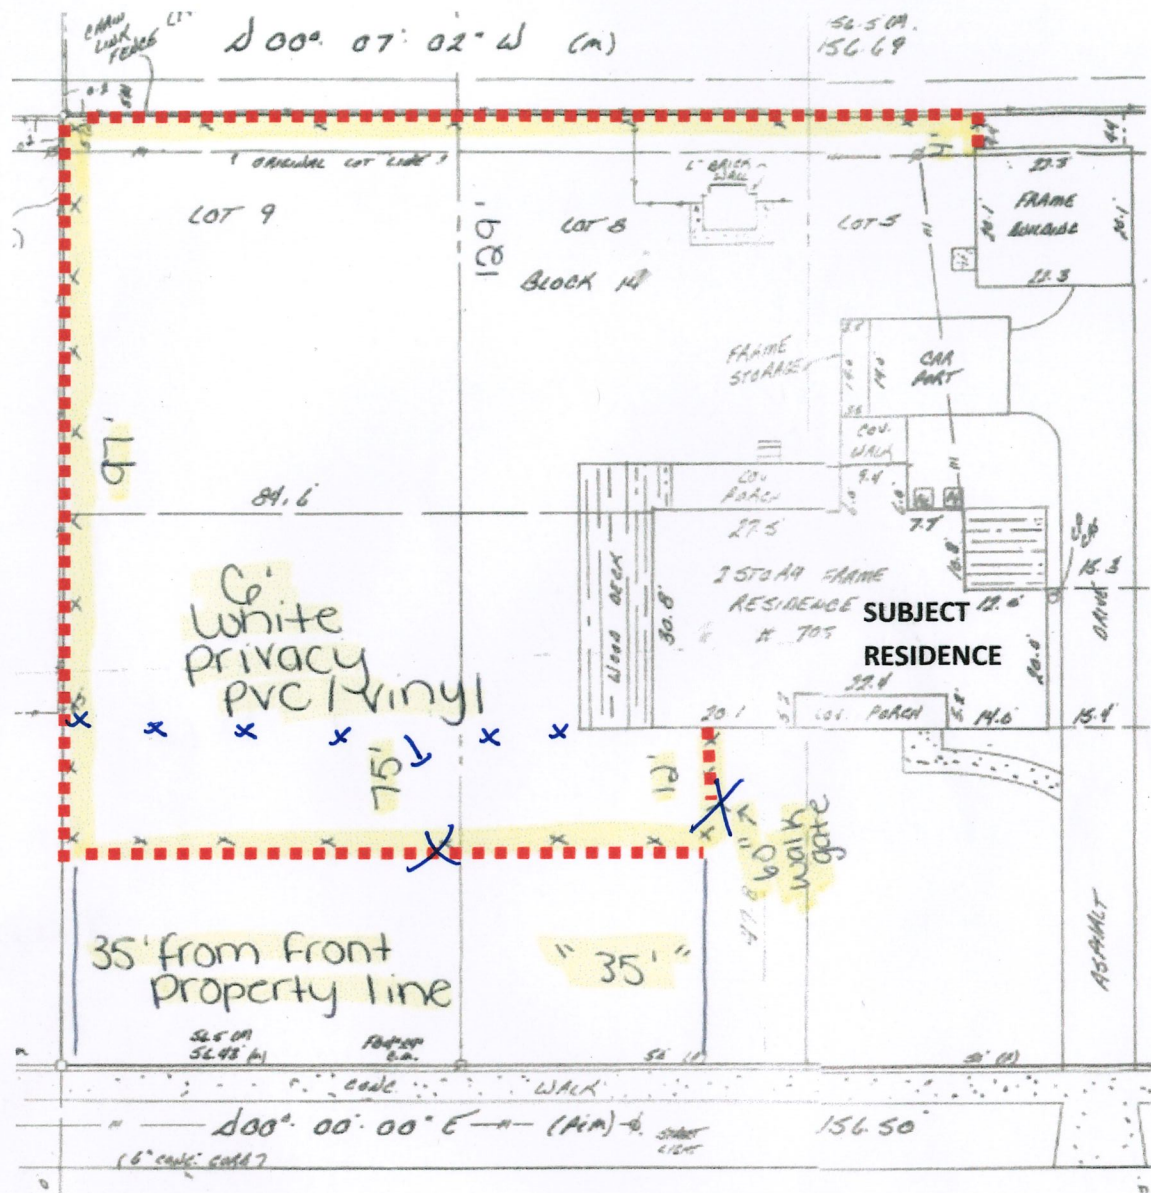 CHAIN
LINK
FENCE
S 00° 07' 02" W (m)
156.5 (P).
156.69
" ORIGINAL LOT LINE "
4'
44'
LOT 9
129'
LOT 8
BLOCK 14
BRICK
WALL
LOT 5
22.3
FRAME
BUILDING
20.1'
20.1'
22.3
FRAME
STORAGE
14.0
14.0
CAR
PORT
COV.
WALK
9.4
6.0
6.0
97'
84.6
COV.
PORCH
27.5
7.7
10.8
WOOD DECK
30.8'
2 STORY FRAME
RESIDENCE
# 705
SUBJECT
RESIDENCE
12.6'
20.0
15.3
DRIVE
6'
White
privacy
PVC / vinyl
22.4
20.1
5.2
COV. PORCH
5.2'
14.6'
15.4'
75'
12'
60"
walk
gate
47.8
35' from front
property line
" 35' "
ASPHALT
56.5 (P)
56.48 (m)
50' (P)
50' (P)
CONC. WALK
S 00° 00' 00" E (P&M)
STREET
LIGHT
156.50
(6" CONC. CURB)